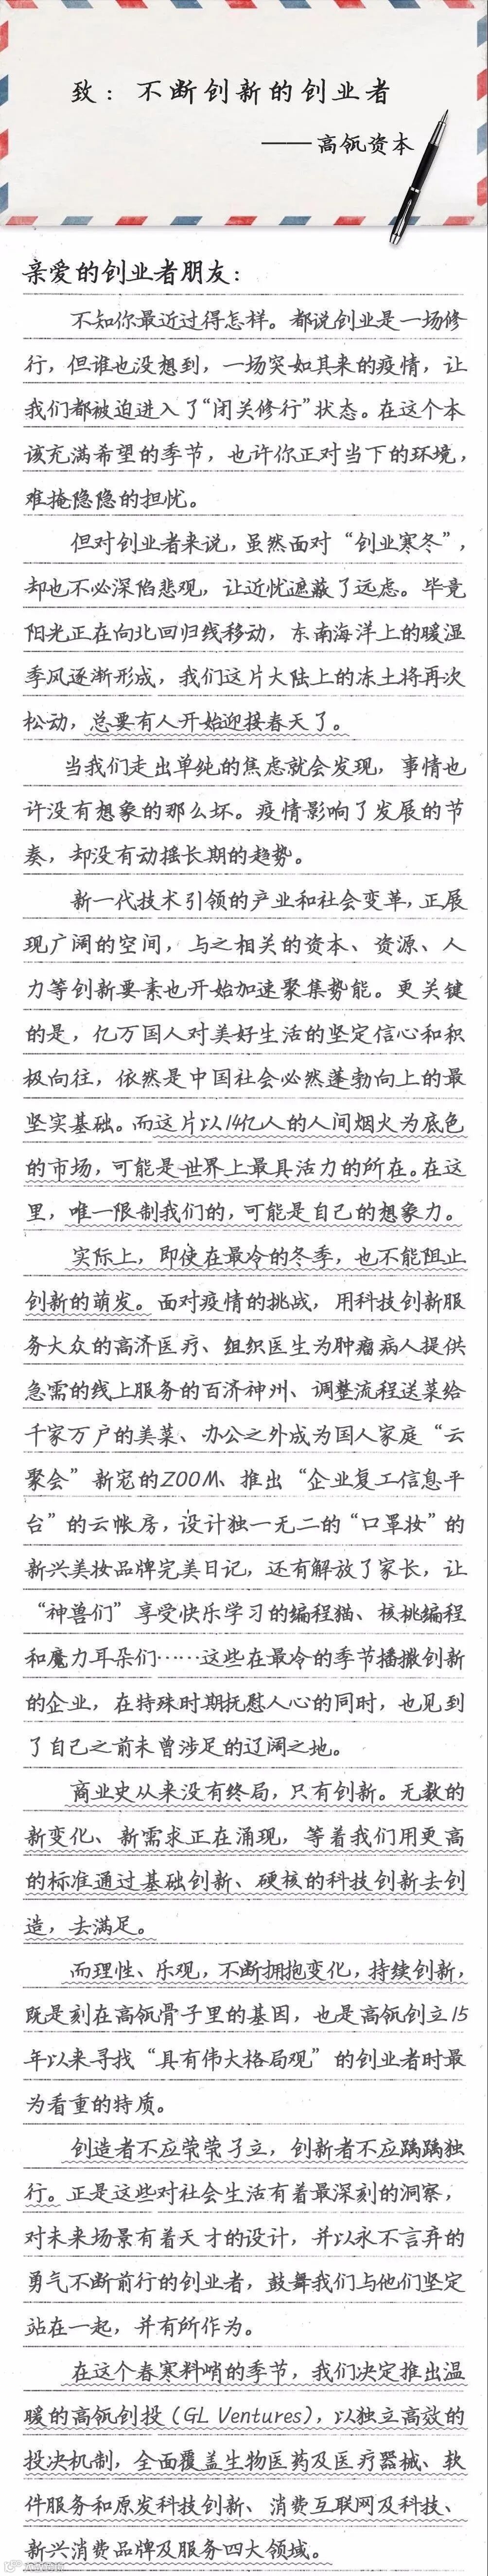 致：不断创新的创业者
——高瓴资本
亲爱的创业者朋友：
不知你最近过得怎样。都说创业是一场修
行，但谁也没想到，一场突如其来的疫情，让
我们都被迫进入了“闭关修行”状态。在这个本
该充满希望的季节，也许你正对当下的环境，
难掩隐隐的担忧。
但对创业者来说，虽然面对“创业寒冬”，
却也不必深陷悲观，让近忧遮蔽了远虑。毕竟
阳光正在向北回归线移动，东南海洋上的暖湿
季风逐渐形成，我们这片大陆上的冻土将再次
松动，总要有人开始迎接春天了。
当我们走出单纯的焦虑就会发现，事情也
许没有想象的那么坏。疫情影响了发展的节
奏，却没有动摇长期的趋势。
新一代技术引领的产业和社会变革，正展
现广阔的空间，与之相关的资本、资源、人
力等创新要素也开始加速聚集势能。更关键
的是，亿万国人对美好生活的坚定信心和积
极向往，依然是中国社会必然蓬勃向上的最
坚实基础。而这片以14亿人的人间烟火为底色
的市场，可能是世界上最具活力的所在。在这
里，唯一限制我们的，可能是自己的想象力。
实际上，即使在最冷的冬季，也不能阻止
创新的萌发。面对疫情的挑战，用科技创新服
务大众的高济医疗、组织医生为肿瘤病人提供
急需的线上服务的百济神州、调整流程送菜给
千家万户的美菜、办公之外成为国人家庭“云
聚会”新宠的ZOOM、推出“企业复工信息平
台”的云帐房，设计独一无二的“口罩妆”的
新兴美妆品牌完美日记，还有解放了家长，让
“神兽们”享受快乐学习的编程猫、核桃编程
和魔力耳朵们……这些在最冷的季节播撒创新
的企业，在特殊时期抚慰人心的同时，也见到
了自己之前未曾涉足的辽阔之地。
商业史从来没有终局，只有创新。无数的
新变化、新需求正在涌现，等着我们用更高
的标准通过基础创新、硬核的科技创新去创
造，去满足。
而理性、乐观，不断拥抱变化，持续创新，
既是刻在高瓴骨子里的基因，也是高瓴创立15
年以来寻找“具有伟大格局观”的创业者时最
为看重的特质。
创造者不应茕茕孑立，创新者不应踽踽独
行。正是这些对社会生活有着最深刻的洞察，
对未来场景有着天才的设计，并以永不言弃的
勇气不断前行的创业者，鼓舞我们与他们坚定
站在一起，并有所作为。
在这个春寒料峭的季节，我们决定推出温
暖的高瓴创投（GL Ventures），以独立高效的
投决机制，全面覆盖生物医药及医疗器械、软
件服务和原发科技创新、消费互联网及科技、
新兴消费品牌及服务四大领域。